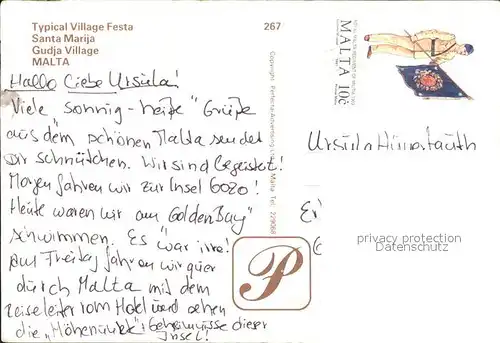 Typical Village Festa
Santa Marija
Gudja Village
MALTA
267
Hallo liebe Ursula!
Viele sonnig-heiße" Grüße
aus dem schönen Malta sendet
Dir Schnütchen. Wir sind begeistert!
Morgen fahren wir zur Insel Gozo!
Heute waren wir am Golden Bay"
schwimmen. Es "war irre!
Am Freitag fahren wir quer
durch Malta mit dem
Reiseleiter vom Hotel und sehen
die "Höhepunkte", Geheimnisse dieser
Insel!
Copyright Perfecta Advertising Ltd. Malta Tel: 229068
MALTA 10c
Ursula
privacy protection
Datenschutz
P